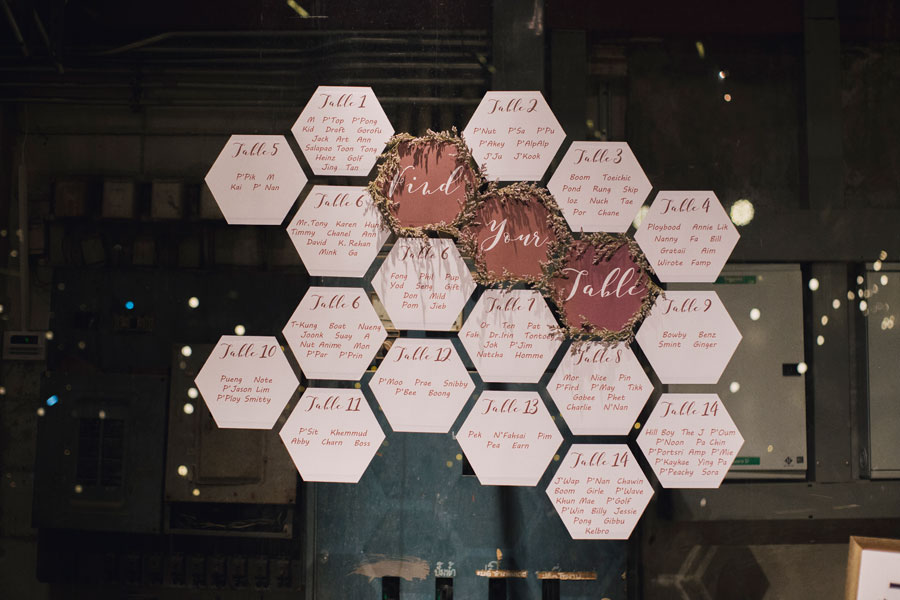 Find
Your
Table
Table 1
M P'Top P'Pong
Kid Draft Gorofu
Jack Art Ann
Salapao Toon Tong
Heinz Golf
Jing Tan
Table 2
P'Nut P'Sa P'Pu
P'Akey P'AlpAlp
P'Ju P'Kook
Table 3
Boom Toeichic
Pond Rung Skip
Ioz Nuch Tae
Por Chane
Table 4
Ploybood Annie Lik
Nanny Fa Bill
Gratail Aim
Wirote Famp
Table 5
P'Pik M
Kai P' Nan
Table 6
Mr.Tony Karen Huh
Timmy Chanel Ann
David K.Rehan
Mink Ga
Table 6
Fong Phil Pup
Yod Seng Gift
Don Mild
Pom Jieb
Table 6
T-Kung Boat Nueng
Joonk Suay A
Nut Anime Mon
P'Par P'Prin
Table 7
Or Ten Pat
Fak Dr.Irin Tontoey
Jok P'Jim
Natcha Homme
Table 8
Mor Nice Pin
P'Fird P'May Tikk
Gobee Phet
Charlie N'Nan
Table 9
Bowby Benz
Smint Ginger
Table 10
Pueng Note
P'Jason Lim
P'Ploy Smitty
Table 11
P'Sit Khemmud
Abby Charn Boss
Table 12
P'Moo Prae Snibby
P'Bee Boong
Table 13
Pek N'Fahsai Pim
Pea Earn
Table 14
Hill Boy The J P'Oum
P'Noon Pa Chin
P'Portsri Amp P'Mie
P'Kaykae Ying Pu
P'Peachy Sora
Table 14
J'Wap P'Nan Chawin
Boom Girle P'Wave
Khun Mae P'Golf
P'Win Billy Jessie
Pong Gibbu
Kelbro
ปั๊มน้ำ